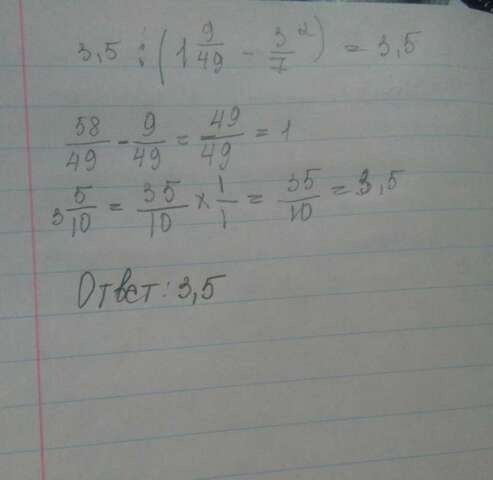 3,5 : (1 9/49 - 3²/7) = 3,5
58/49 - 9/49 = 49/49 = 1
3 5/10 = 35/10 × 1/1 = 35/10 = 3,5
Ответ: 3,5